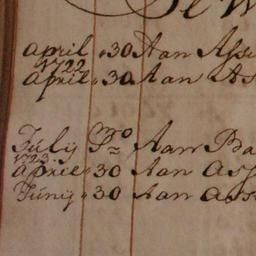 april 30 Aan Assu
1722
april 30 Aan As
July pmo Aan Ba
1723
april 30 Aan Ass
Junij 30 Aan Ass